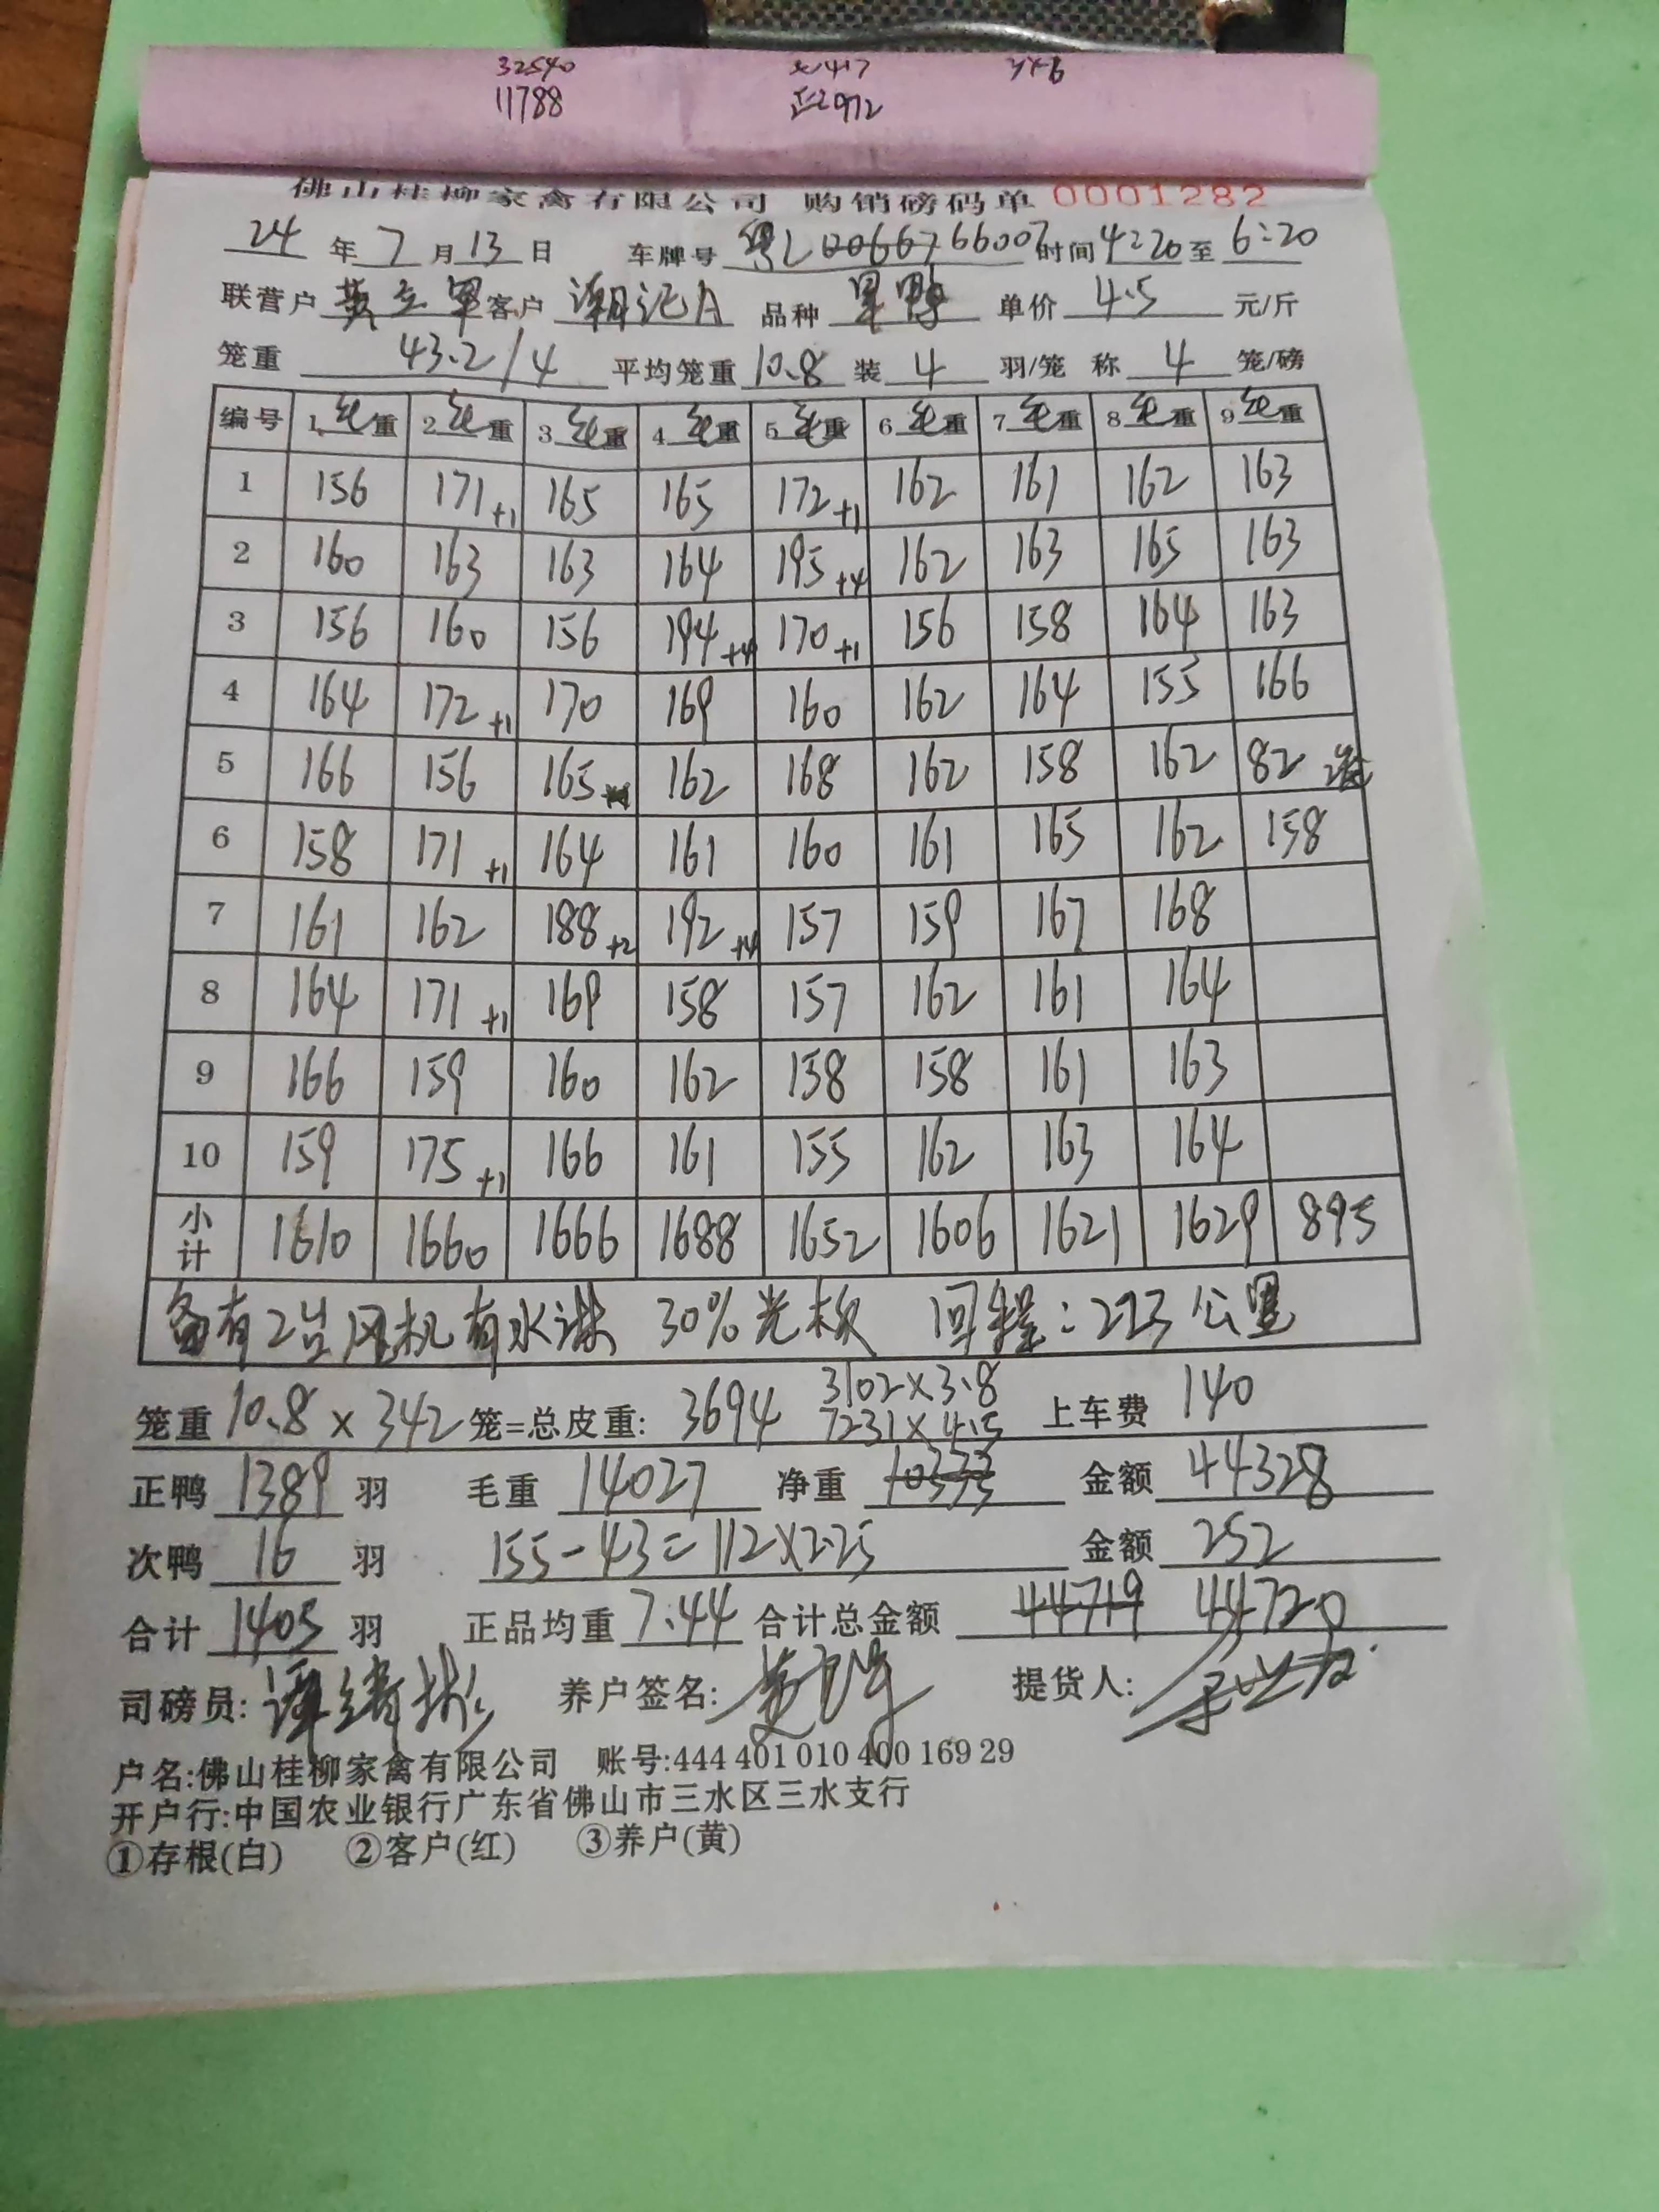 32540
11788 正2972
佛山桂柳家禽有限公司 购销磅码单 0001282
24 年 7 月 13 日 车牌号 粤L 时间 4:20 至 6:20
联营户 黄立军 客户 潮记A 品种 单价 4.5 元/斤
笼重 43.2/4 平均笼重 10.8 装 4 羽/笼 称 4 笼/磅
编号 1 毛重 2 毛重 3 毛重 4 毛重 5 毛重 6 毛重 7 毛重 8 毛重 9 毛重
1 156 171+1 165 165 172+1 162 161 162 163
2 160 163 163 164 195+4 162 163 165 163
3 156 160 156 194+4 170+1 156 158 164 163
4 164 172+1 170 169 160 162 164 155 166
5 166 156 165 162 168 162 158 162 82
6 158 171+1 164 161 160 161 165 162 158
7 161 162 188+2 192+4 157 159 167 168
8 164 171+1 169 158 157 162 161 164
9 166 159 160 162 158 158 161 163
10 159 175+1 166 161 155 162 163 164
小计 1610 1660 1666 1688 1652 1606 1621 1629 895
备有2台风机有水淋 30%光板 回程:223公里
3102×3.8
笼重 10.8 × 342 笼=总皮重: 3694 7231×4.5 上车费 140
正鸭 1389 羽 毛重 14027 净重 10333 金额 44328
次鸭 16 羽 155-43=112×2.25 金额 252
合计 1405 羽 正品均重 7.44 合计总金额 44719 44720
司磅员: 养户签名: 提货人:
户名:佛山桂柳家禽有限公司 账号:444 401 010 400 169 29
开户行:中国农业银行广东省佛山市三水区三水支行
①存根(白) ②客户(红) ③养户(黄)